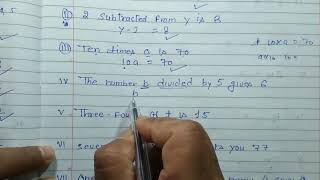 5
II 2 Subtracted From y is 8
y-2 = 8
III Ten times a is 70
10a = 70
10xa = 70
IV The number b divided by 5 gives 6
b
V Three- t is 15
VI seve you 77
VII